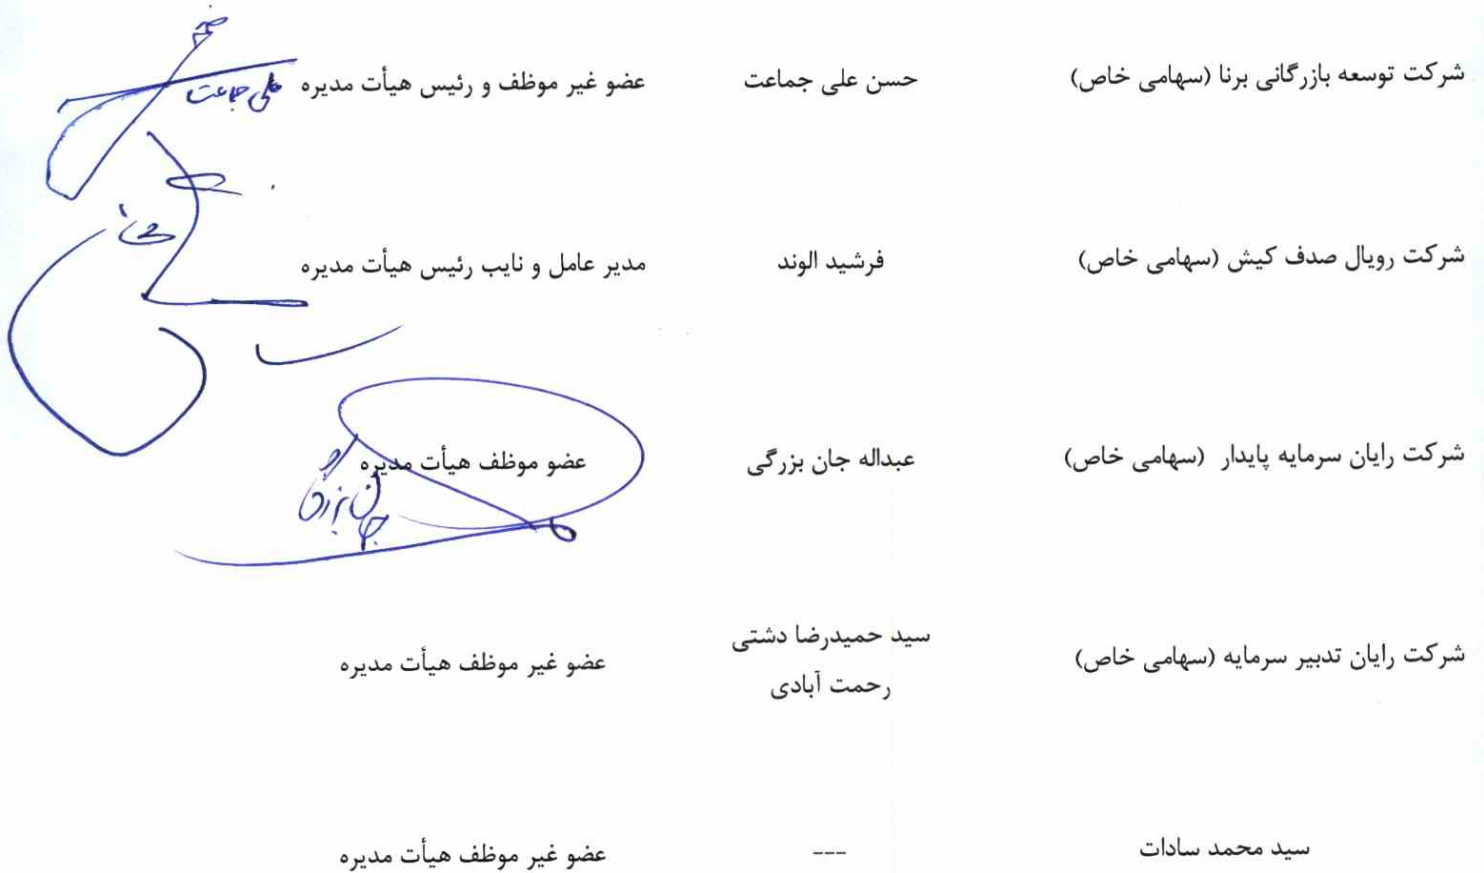 شرکت توسعه بازرگانی برنا (سهامی خاص) حسن علی جماعت عضو غیر موظف و رئیس هیأت مدیره
علی جماعت
شرکت رویال صدف کیش (سهامی خاص) فرشید الوند مدیر عامل و نایب رئیس هیأت مدیره
شرکت رایان سرمایه پایدار (سهامی خاص) عبداله جان بزرگی عضو موظف هیأت مدیره
جان بزرگی
شرکت رایان تدبیر سرمایه (سهامی خاص) سید حمیدرضا دشتی عضو غیر موظف هیأت مدیره
رحمت آبادی
سید محمد سادات --- عضو غیر موظف هیأت مدیره